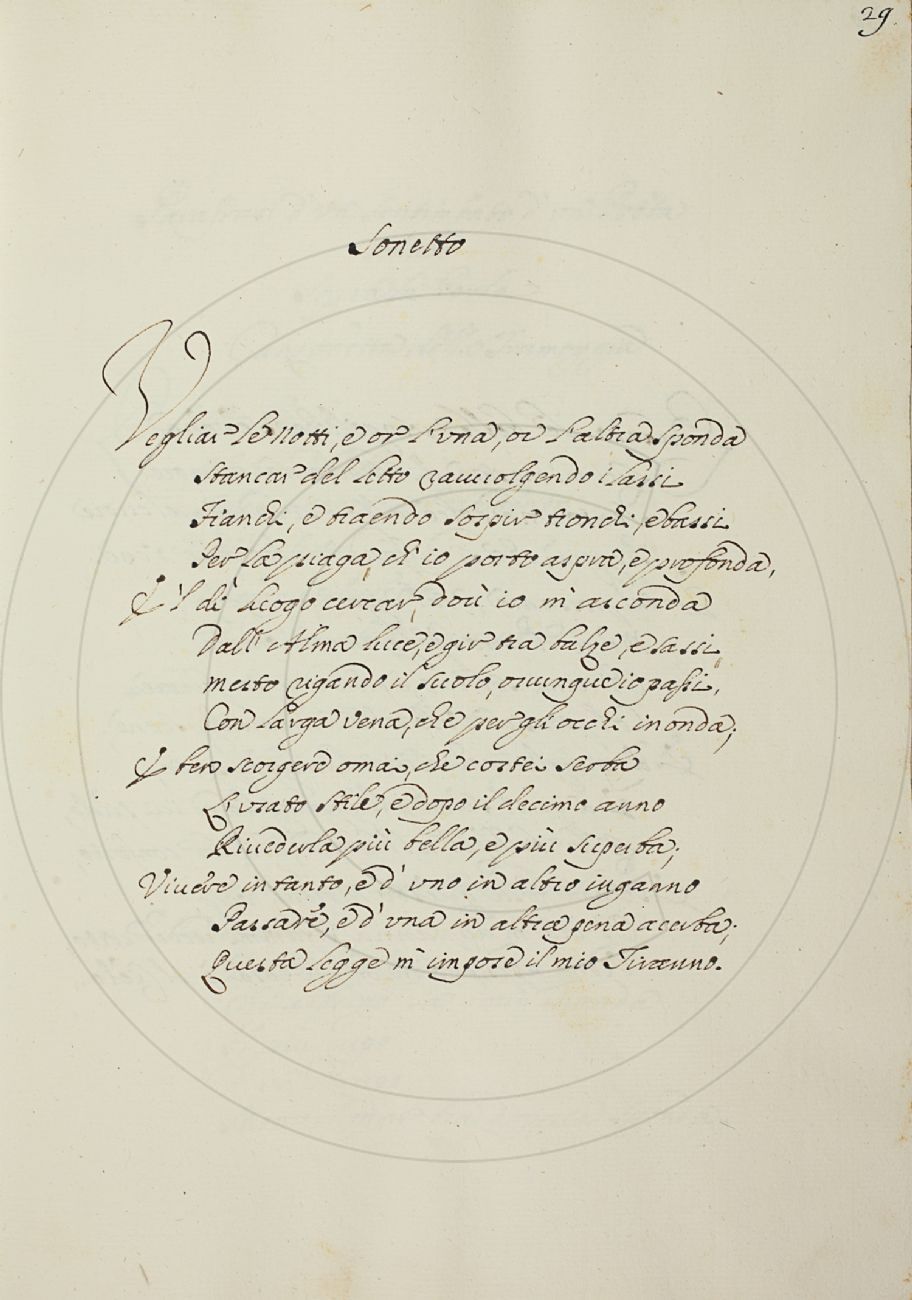 29
Sonetto
Vegliar le Notti, e or l'una, or l'altra sponda
Stancar del letto ravvolgendo i lassi
Fianchi, e traendo sospir tronchi, e bassi
Per la piaga, ch'io porto aspra, e profonda,
E 'l dì luogo cercar, dov' io m' asconda
Dall' Alma luce, e gir tra balze, e sassi
mesto rigando il suolo, ovunque io passi,
Con larga vena, che per gli occhi inonda;
E ben scorgere omai, che costei serba
L'usato stile, e dopo il decimo anno
Rivederla più bella, e più superba;
Vivere intanto, e d' uno in altro inganno
Passare, e d' una in altra pena acerba;
Questa legge m' impose il mio Tiranno.